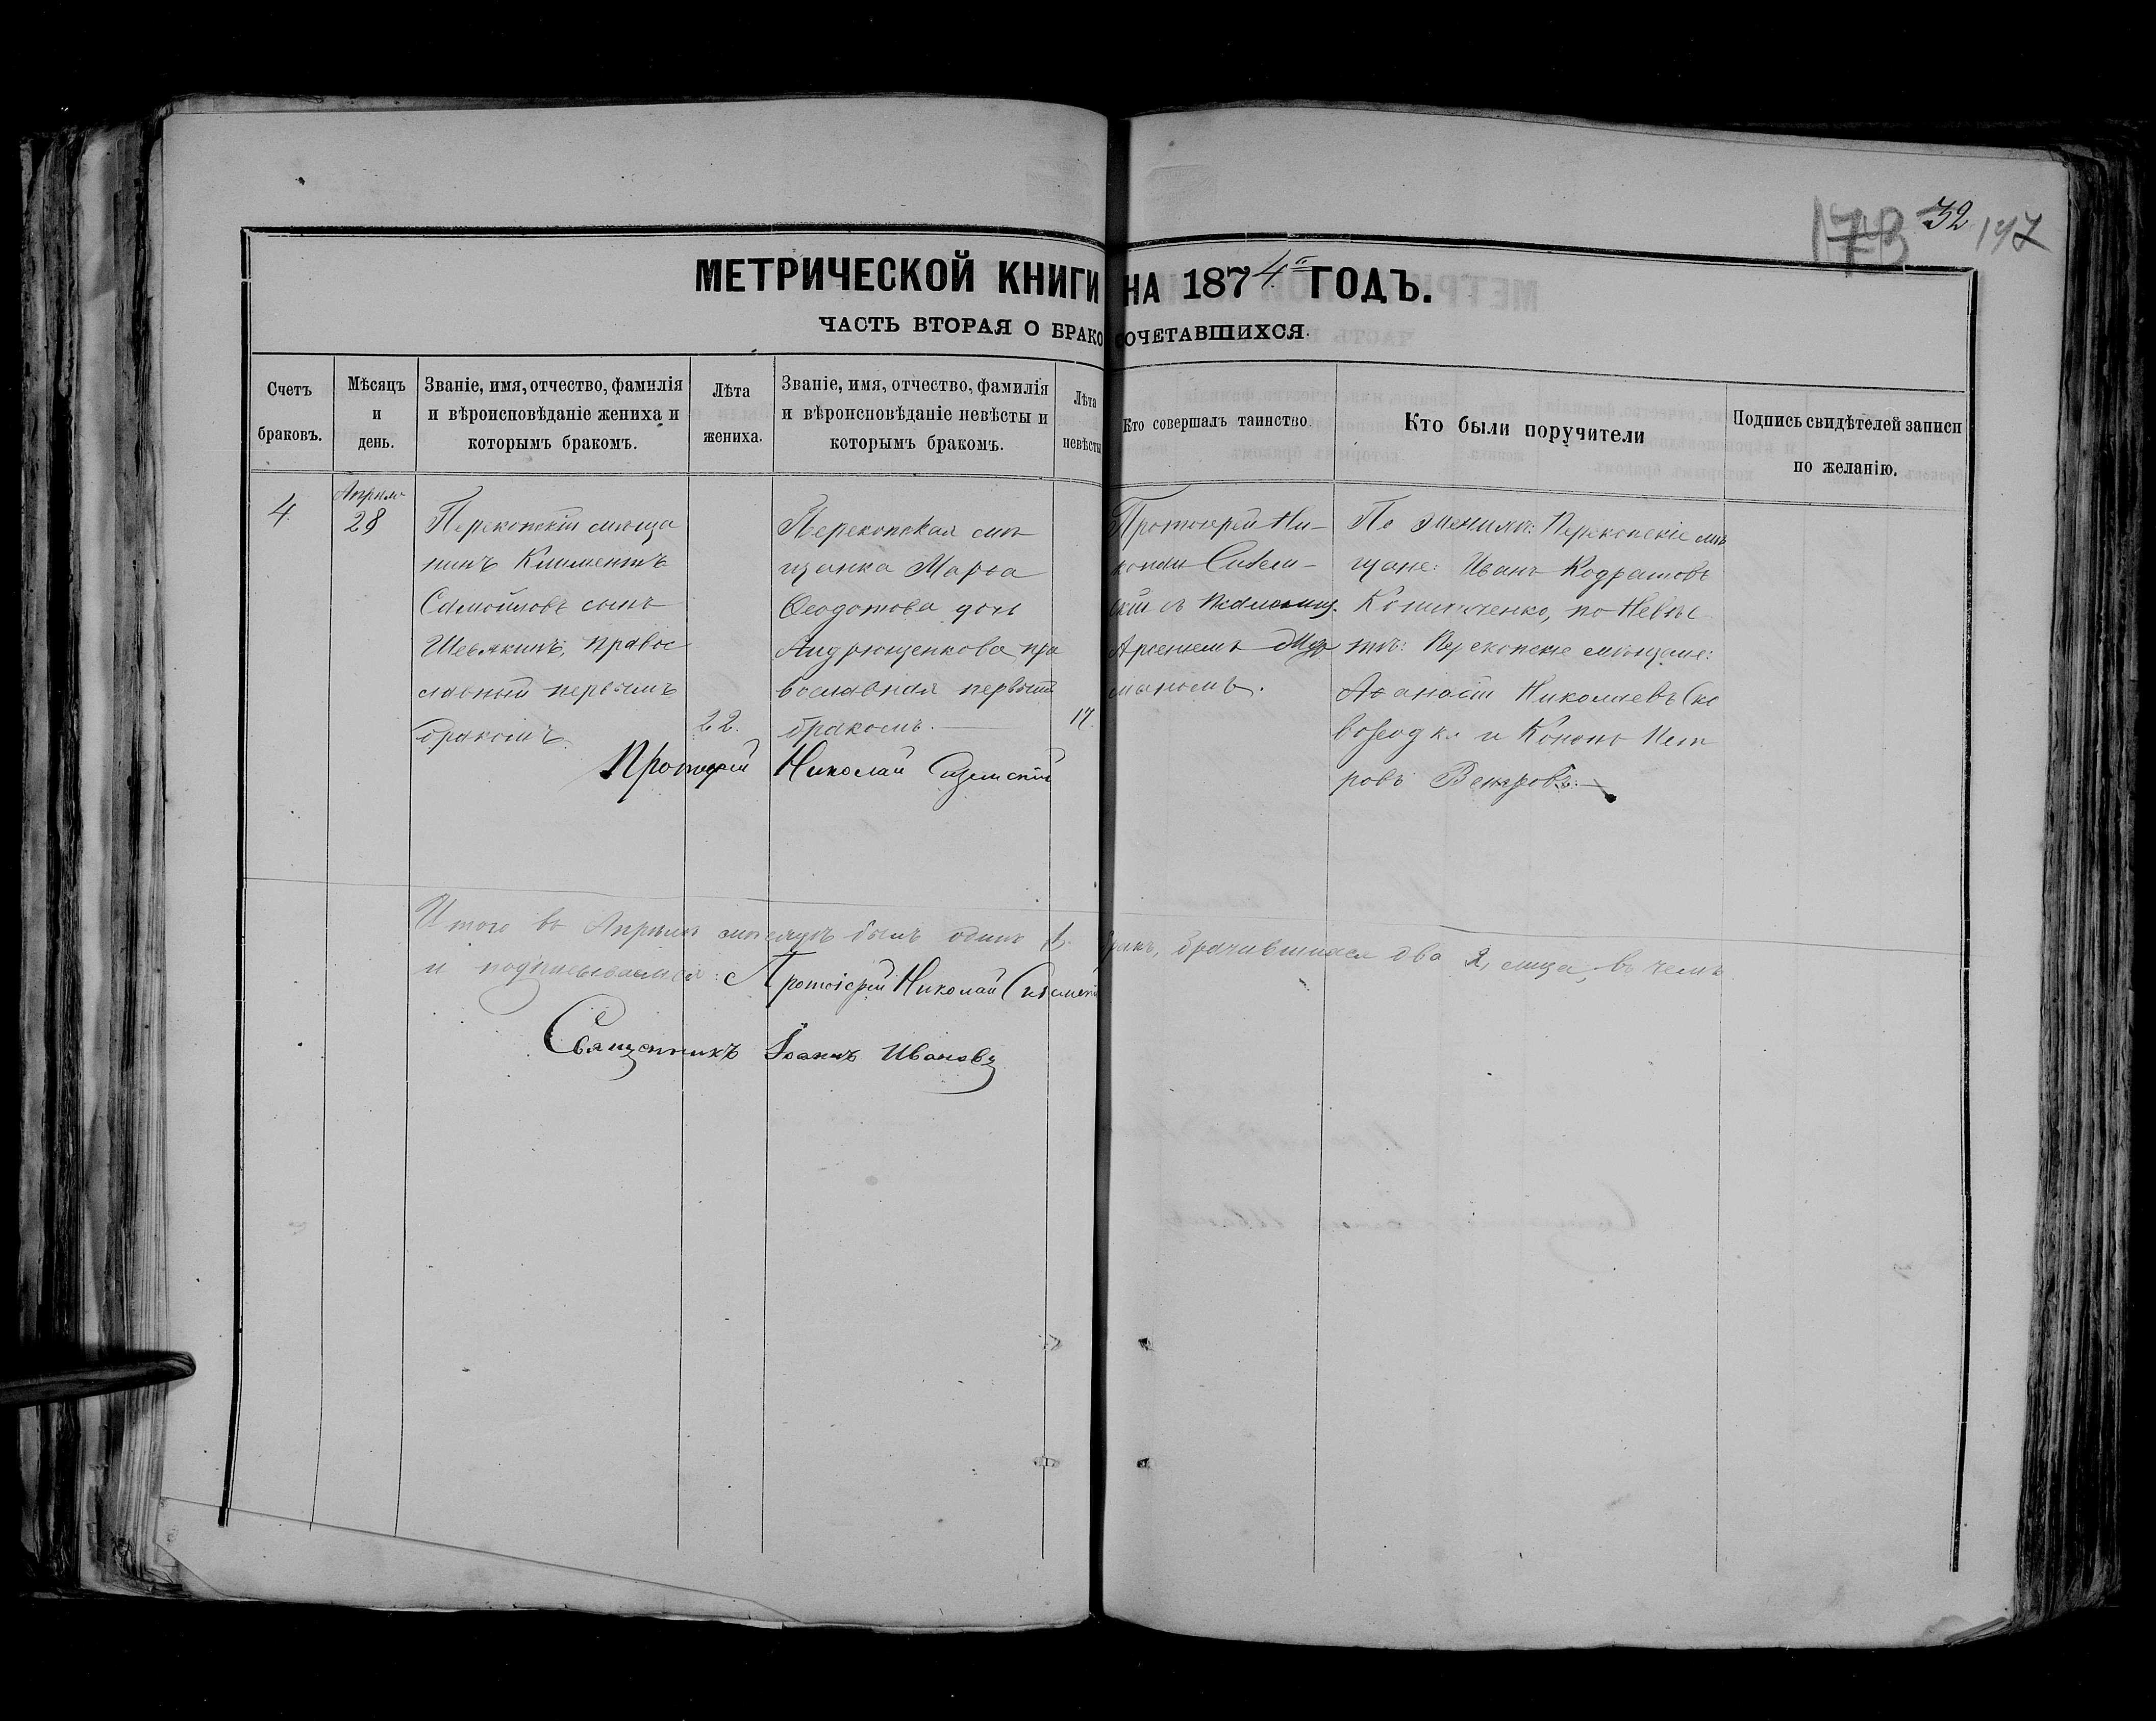 173 32 197
МЕТРИЧЕСКОЙ КНИГИ НА 1874й ГОДЪ.
ЧАСТЬ ВТОРАЯ О БРАКОСОЧЕТАВШИХСЯ.
Счетъ
браковъ.
Мѣсяцъ
и
день.
Званіе, имя, отчество, фамилія
и вѣроисповѣданіе жениха и
которымъ бракомъ.
Лѣта
жениха.
Званіе, имя, отчество, фамилія
и вѣроисповѣданіе невѣсты и
которымъ бракомъ.
Лѣта
невѣсты
Кто совершалъ таинство.
Кто были поручители
Подпись свидѣтелей записи
по желанію.
4.
Апрѣль
28
Перекопскій мѣща
нинъ Климентъ
Самойловъ сынъ
Шевякинъ, правос
лавный первымъ
бракомъ.
22.
Перекопская мѣ
щанка Марѳа
Ѳеодотова дочь
Андрющенкова, пра
вославная первымъ
бракомъ.
17.
Протоіерей Ни-
колай
скій съ
Арсеніемъ
По женихѣ: Перекопскіе мѣ
щане: Иванъ Кодратовъ
по невѣс
тѣ: Перекопскіе мѣщане:
Аѳанасій Николаевъ Ско
ворода и Кононъ Пет
ровъ Венгровъ.
Протоіерей Николай
Итого въ Апрѣлѣ мѣсяцѣ былъ одинъ 1. бракъ, брачившихся два 2, лица, въ чемъ
и подписываемся: Протоіерей Николай
Священникъ Іоаннъ Ивановъ